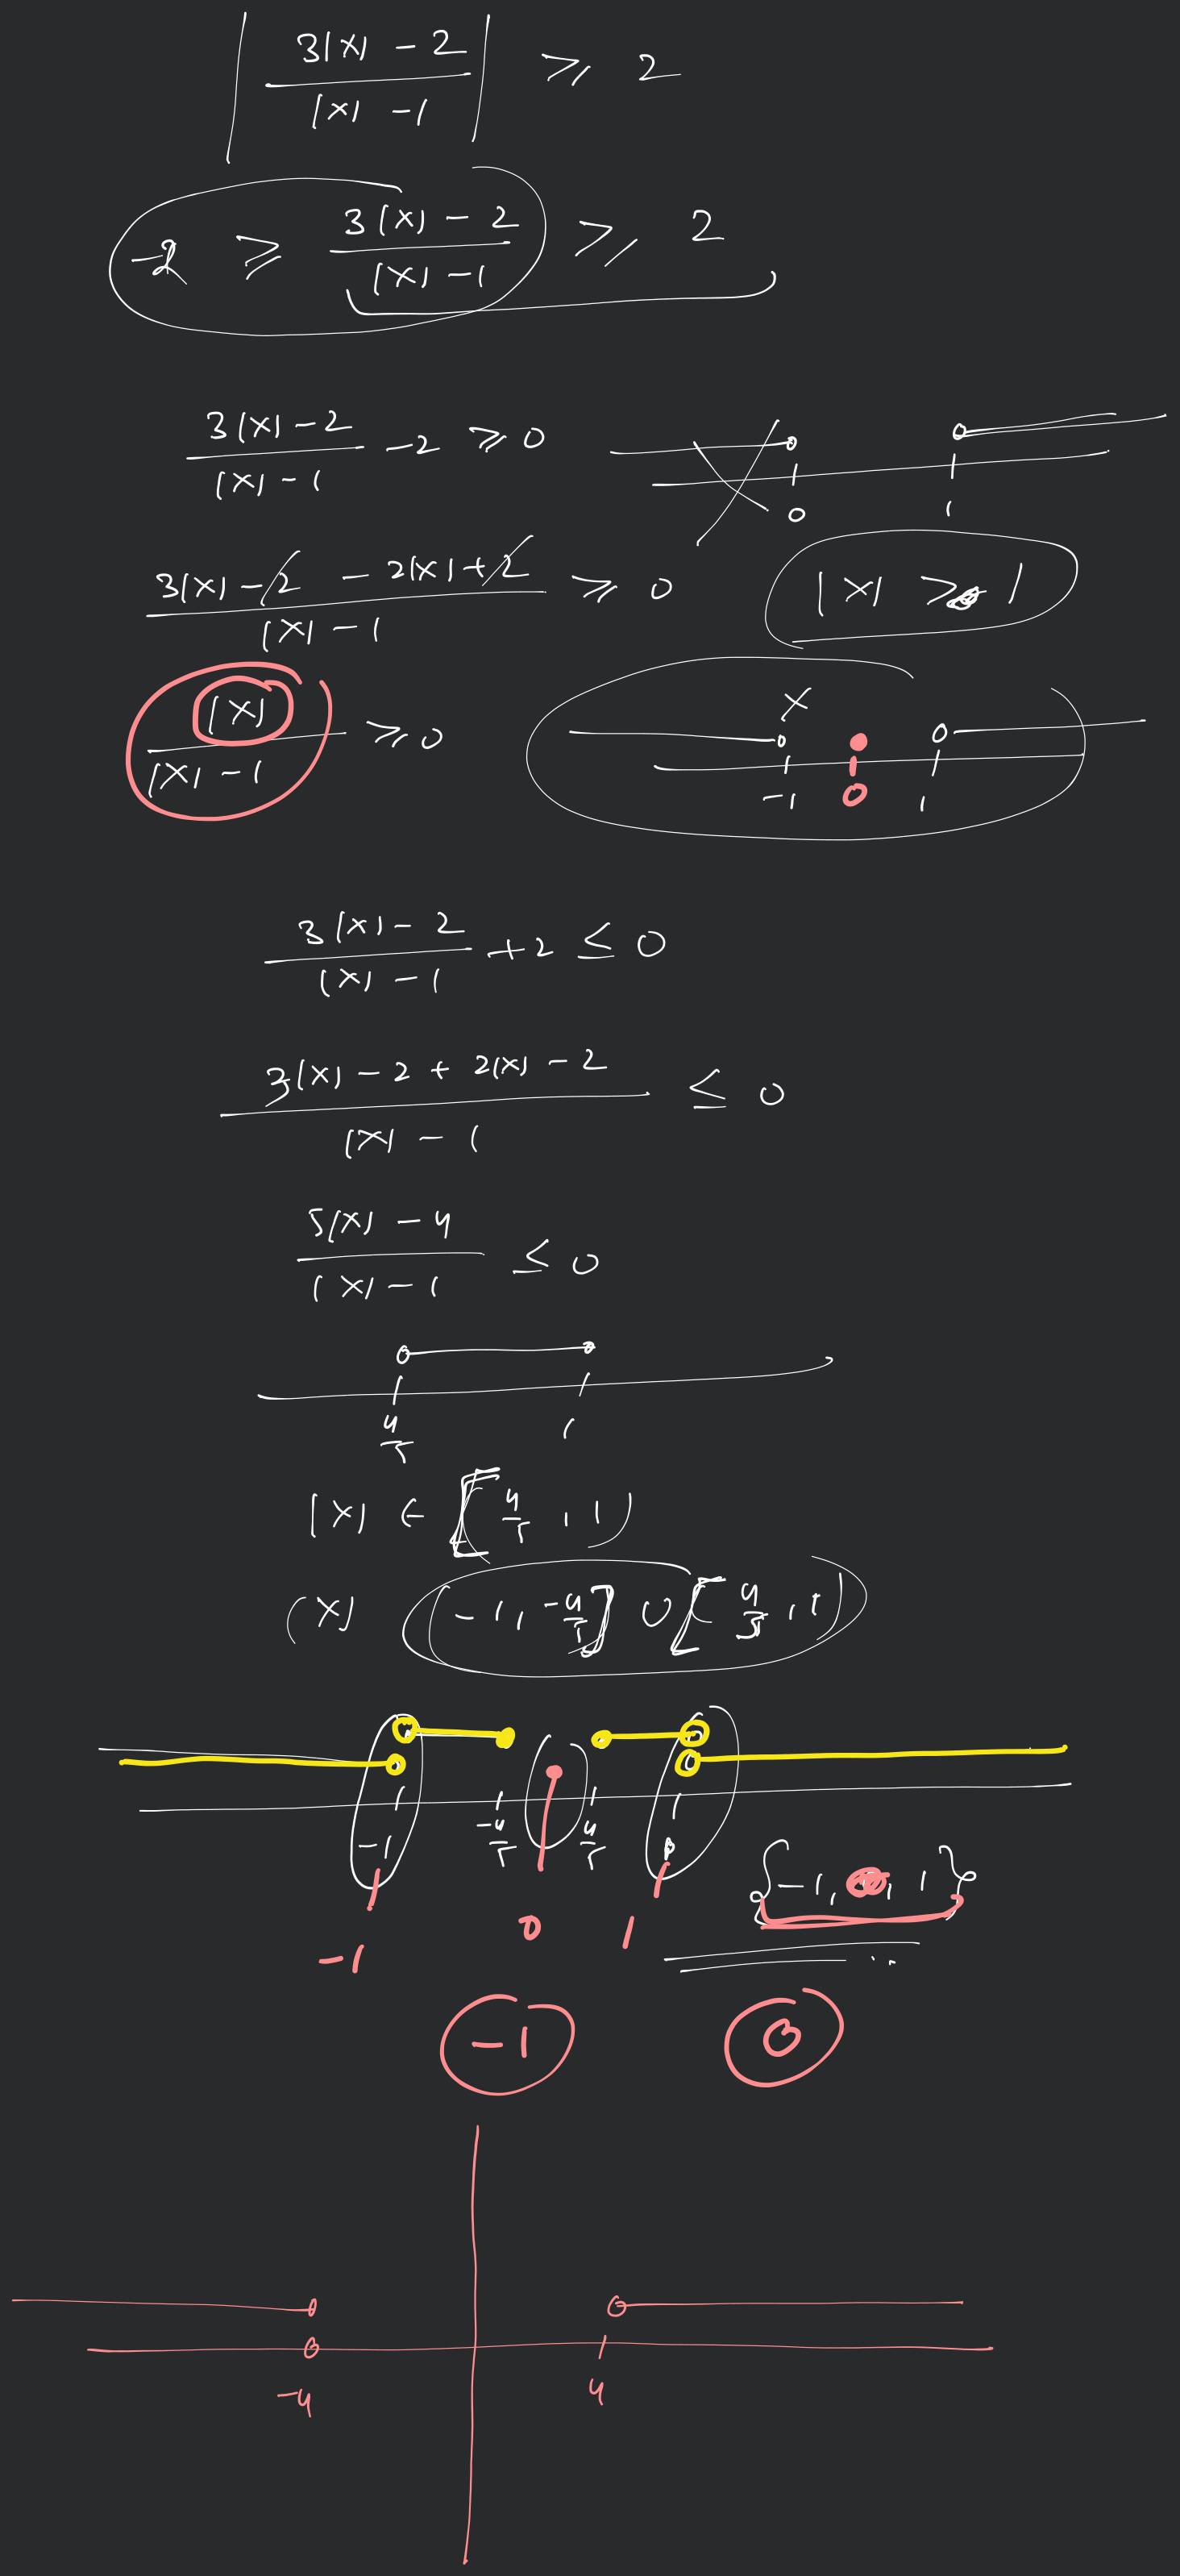 | (3|x| - 2)/(|x| - 1) | ⩾ 2
-2 ⩾ (3|x| - 2)/(|x| - 1) ⩾ 2
(3|x| - 2)/(|x| - 1) - 2 ⩾ 0
0 1
(3|x| - 2 - 2|x| + 2)/(|x| - 1) ⩾ 0
|x| > 1
|x|/(|x| - 1) ⩾ 0
x
-1 0 1
(3|x| - 2)/(|x| - 1) + 2 ≤ 0
(3|x| - 2 + 2|x| - 2)/(|x| - 1) ≤ 0
(5|x| - 4)/(|x| - 1) ≤ 0
4/5 1
|x| ∈ [4/5, 1)
|x| (-1, -4/5] ∪ [4/5, 1)
-1 -4/5 4/5
{-1, , 1}
-1 0 1
-1 0
-4 4